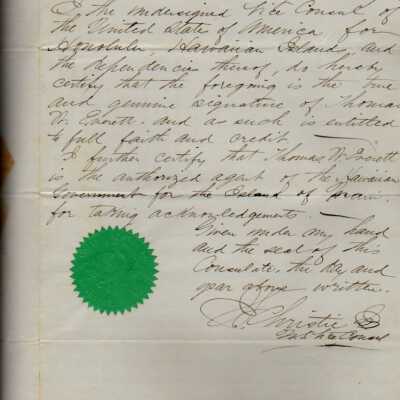 I the undersigned Vice Consul of
the United States of America for
Honolulu, Hawaiian Islands, and
the dependencies thereof, do hereby
certify that the foregoing is the true
and genuine signature of Thomas
W. Everett. and as such is entitled
to full faith and credit. —
I further certify that Thomas W. Everett
is the authorized agent of the Hawaiian
Government for the Island of
for taking acknowledgements. —
Given under my hand
and the seal of this
Consulate. the day and
year above written.
Christie
U.S. Vice Consul